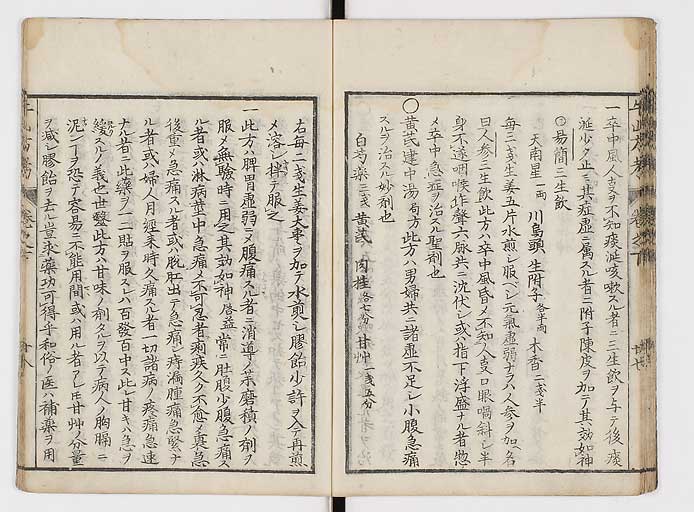 一 卒中風人事ヲ不知痰涎咳嗽スル者ニ三生飲ヲ与テ後痰
涎少ク止ミ其症虚ニ属スル者ニ附子陳皮ヲ加テ其効如神
○易簡三生飲
天南星一両 川烏頭 生附子各半両 木香二戔半
毎三戔生姜五片水煎シ服ベシ元氣虚弱ナラバ人参ヲ加名
曰人参三生飲此方ハ卒中風昏メ不知人事口眼喎斜シ半
身不遂咽喉作聲六脉共ニ沈伏シ或ハ指下浮盛ナル者惣
メ卒中急症ヲ治スル聖剤也
○黄芪建中湯局方此方ハ男婦共ニ諸虚不足シ小腹急痛
スルヲ治スル妙剤也
白芍薬三戔 黄芪 肉桂各七分 甘艸一戔五分
右毎二戔生姜大棗ヲ加テ水煎シ膠飴少許ヲ入テ再煎
メ溶シ拌テ服之
一 此方ハ脾胃虚弱ニメ腹痛スル者ニ消導ノ茱磨積ノ剤ヲ
服メ無驗時ニ用之其効如神啓益常ニ肚腹少腹急痛ス
ル者或ハ淋病莖中急痛メ不可忍者痢疾久ク不愈メ裏急
後重メ急痛スル者或ハ脱肛出テ急痛シ痔漏腫痛急緊ナ
ル者或ハ婦人月經来時久痛スル者一切諸病ノ疼痛急速
ナル者ニ此藥ヲ一二貼ヲ服スレハ百發百中ス此レ甘キハ急ヲ
緩スルノ義也世醫此方ハ甘味ノ剤タルヲ以テ病人ノ胸膈ニ
泥ンヿヲ恐テ容易ニ不能用間或ハ用ル者アレ𪜈甘艸ノ分量
ヲ減シ膠飴ヲ去ル豈求薬功可得乎和俗ノ医ハ補薬ヲ用